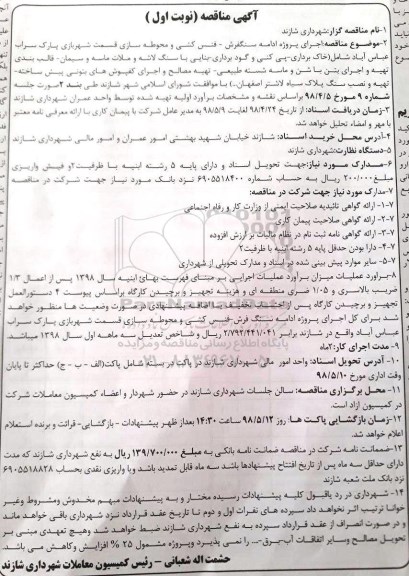 آگهی مناقصه (نوبت اول)
۱-نام مناقصه گزار:شهرداری شازند
۲-موضوع مناقصه:اجرای پروژه ادامه سنگفرش - فنس کشی و محوطه سازی قسمت شهربازی پارک سراب
عباس آباد شامل(خاک برداری-پی کنی و گود برداری-بنایی با سنگ لاشه و ملات ماسه و سیمان- قالب بندی
تهیه و اجرای بتن با شن و ماسه شسته طبیعی- تهیه مصالح و اجرای کفپوش های بتونی پیش ساخته-
تهیه و نصب سنگ پلاک سیاه لاشتر اصفهان..) با موافقت شورای اسلامی شهر شازند طی بند ۲صورت جلسه
شماره ۹ مورخ ۹۸/۴/۵ براساس نقشه و مشخصات برآورد اولیه تهیه شده توسط واحد عمران شهرداری شازند
۳-زمان دریافت اسناد: از تاریخ ۹۸/۴/۲۴ لغایت ۹۸/۵/۹ به مدیر عامل شرکت با پیمان کاری با ارائه معرفی نامه معتبر
با مهر و امضاء تحلیل خواهد شد.
۴-آدرس محل خرید اسناد: شازند خیابان شهید بهشتی امور عمران و امور مالی شهرداری شازند
۵-دستگاه نظارت:شهرداری شازند
۶-مدارک مورد نیاز:جهت تحویل اسناد و دارای پایه ۵ رشته ابنیه با ظرفیت۲و فیش واریزی
مبلغ ۲۰۰/۰۰۰ ریال به حساب شماره ۶۹۰۵۵۱۸۴۰۰ نزد بانک مورد نیاز جهت شرکت در مناقصه
۷-مدارک مورد نیاز جهت شرکت در مناقصه:
۱-۷- ارائه گواهی تائیدیه صلاحیت ایمنی از وزارت کار و رفاه اجتماعی
۲-۷- ارائه گواهی صلاحیت پیمان کاری
۳-۷- ارائه گواهی نامه ثبت نام در نظام مالیات بر ارزش افزوده
۴-۷- دارا بودن حداقل پایه ۵ رشته ابنیه با ظرفیت ۲
۵-۷- سایر موارد پیش بینی شده در اسناد و مدارک تحویلی از شهرداری
۸-برآورد عملیات میزان برآورد عملیات اجرایی بر مبنای فهرست بهای ابنیه سال ۱۳۹۸ پس از اعمال ۱/۳
ضریب بالاسری و ۱/۰۵ ضری منطقه ای و هزینه تجهیز و برچیدن کارگاه براساس پیوست ۴ دستورالعمل
تجهیز و برچیدن کارگاه پس از در صورت وضعیت ها منظور خواهد
شد برای کل اجرای پروژه ادامه سنگ فرش-فنس کشی و محوطه سازی قسمت شهربازی پارک سراب
عباس آباد واقع در شازند برابر ۲/۷۹۲/۴۴۱/۰۴۱ ریال و شاخص تعدیل سه ماهه اول سال ۱۳۹۸ میباشد.
۹- مدت اجرای کار:۲ماه
۱۰- آدرس تحویل اسناد: واحد امور مالی شهرداری شازند در پاکت در بسته شامل پاکت(الف - ب - ج) حداکثر تا پایان
وقت اداری مورخ ۹۸/۵/۱۰
۱۱- محل برگزاری مناقصه: سالن جلسات شهرداری شازند در حضور شهردار و اعضاء کمیسیون معاملات شرکت
در کمیسیون آزاد است.
۱۲-زمان بازگشایی پاکت ها: روز ۹۸/۵/۱۲ ساعت ۱۴:۳۰ بعداز ظهر پیشنهادات - بازگشایی- قرائت و برنده استعلام
اعلام خواهد شد.
۱۳-ضمانت نامه شرکت در مناقصه ضمانت نامه بانکی به مبلغ ۱۳۹/۷۰۰/۰۰۰ ریال به نفع شهرداری شازند که مدت
دارای حداقل سه ماه پس از تاریخ افتتاح پیشنهادها باشد سه ماه قابل تمدید باشد و یا واریزی نقدی بحساب ۶۹۰۵۵۱۸۸۲۸
نزد بانک ملت شعبه شازند
۱۴- شهرداری در رد یاقبول کلیه پیشنهادات رسیده مختار و به پیشنهادات مبهم مخدوش ومشروط وغیر
خوانا ترتیب اثر نخواهد داد سپرده های نفرات اول و دوم تا تاریخ عقد قرارداد نزد شهرداری باقی خواهد ماند
و در صورت انصراف از عقد قرارداد سپرده به نفع شهرداری شازند ضبط خواهد شد وهیچ تعهدی مبنی بر
تحویل مصالح وسایر اتفاقات آب-برق-... را نمی پذیرد وپروژه مشمول ۲۵ % افزایش وکاهش می باشد.
حشمت اله شعبانی - رئیس کمیسیون معاملات شهرداری شازند